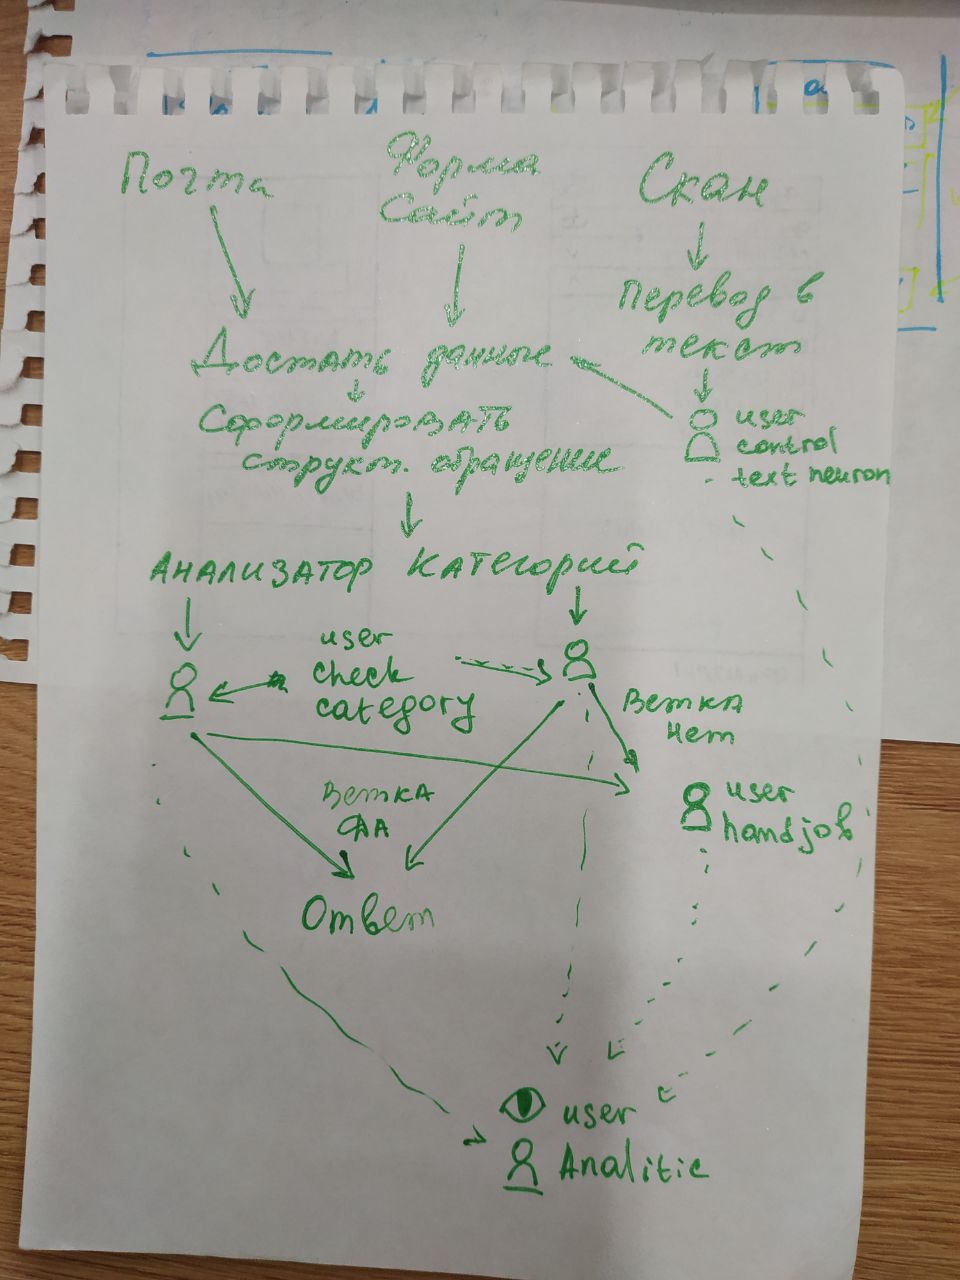 Почта
Форма
Сайт
Скан
Перевод в
текст
Достать данные
user
control
text neuron
Сформировать
структ. обращение
Анализатор категорий
user
check
category
Ветка
нет
user
handjob
Ветка
ДА
Ответ
user
Analitic